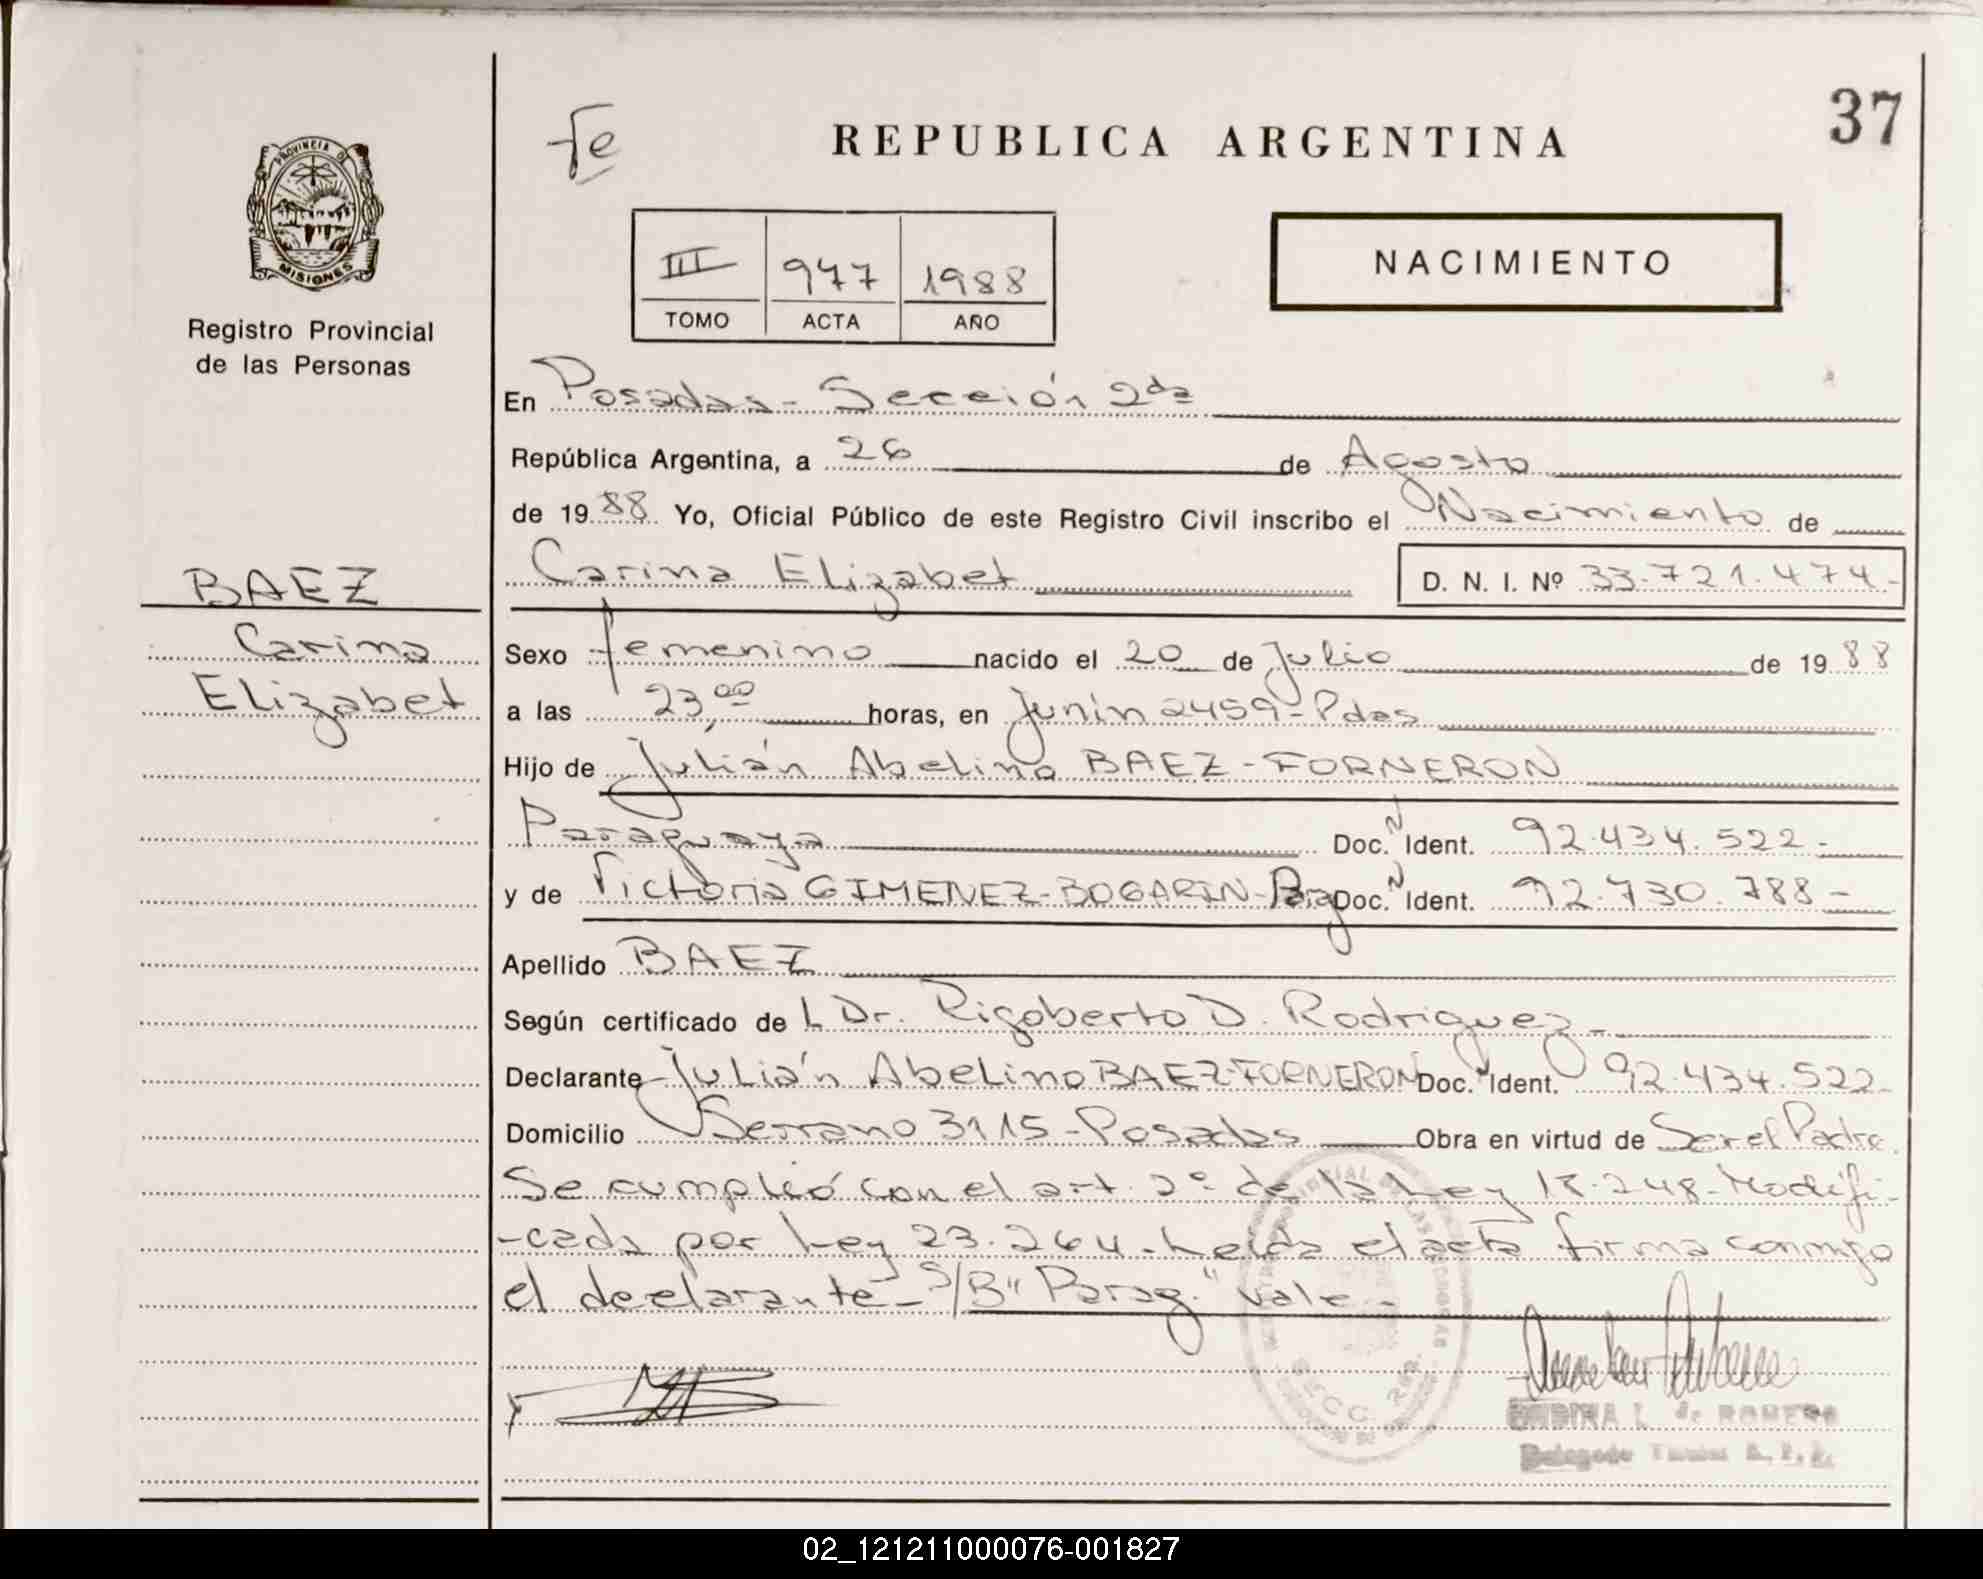 37
Fe
REPUBLICA ARGENTINA
PROVINCIA DE
MISIONES
Registro Provincial
de las Personas
III 947 1988
TOMO ACTA AÑO
NACIMIENTO
En Posadas - Sección 2da
República Argentina, a 26 de Agosto
de 1988 Yo, Oficial Público de este Registro Civil inscribo el Nacimiento de
Carina Elizabet D. N. I. Nº 33.721.474-
BAEZ
Carina
Elizabet
Sexo femenino nacido el 20 de Julio de 1988
a las 23,00 horas, en Junín 2459 - Pdas
Hijo de Julián Abelino BAEZ - FORNERON
Paraguaya Doc. N Ident. 92.434.522-
y de Victoria GIMENEZ - BOGARIN - Parag Doc. N Ident. 92.730.788-
Apellido BAEZ
Según certificado de L Dr. Rigoberto D. Rodriguez -
Declarante Julián Abelino BAEZ-FORNERON Doc. N Ident. 92.434.522-
Domicilio Serrano 3115 - Posadas Obra en virtud de Ser el Padre.
Se cumplió con el art. 2º de la Ley 18.248 - Modifi-
-cada por Ley 23.264 - Leida el acta firma conmigo
el declarante - S/B "Parag." Vale -
SECC. 2da.
L. de ROMERO
02_121211000076-001827